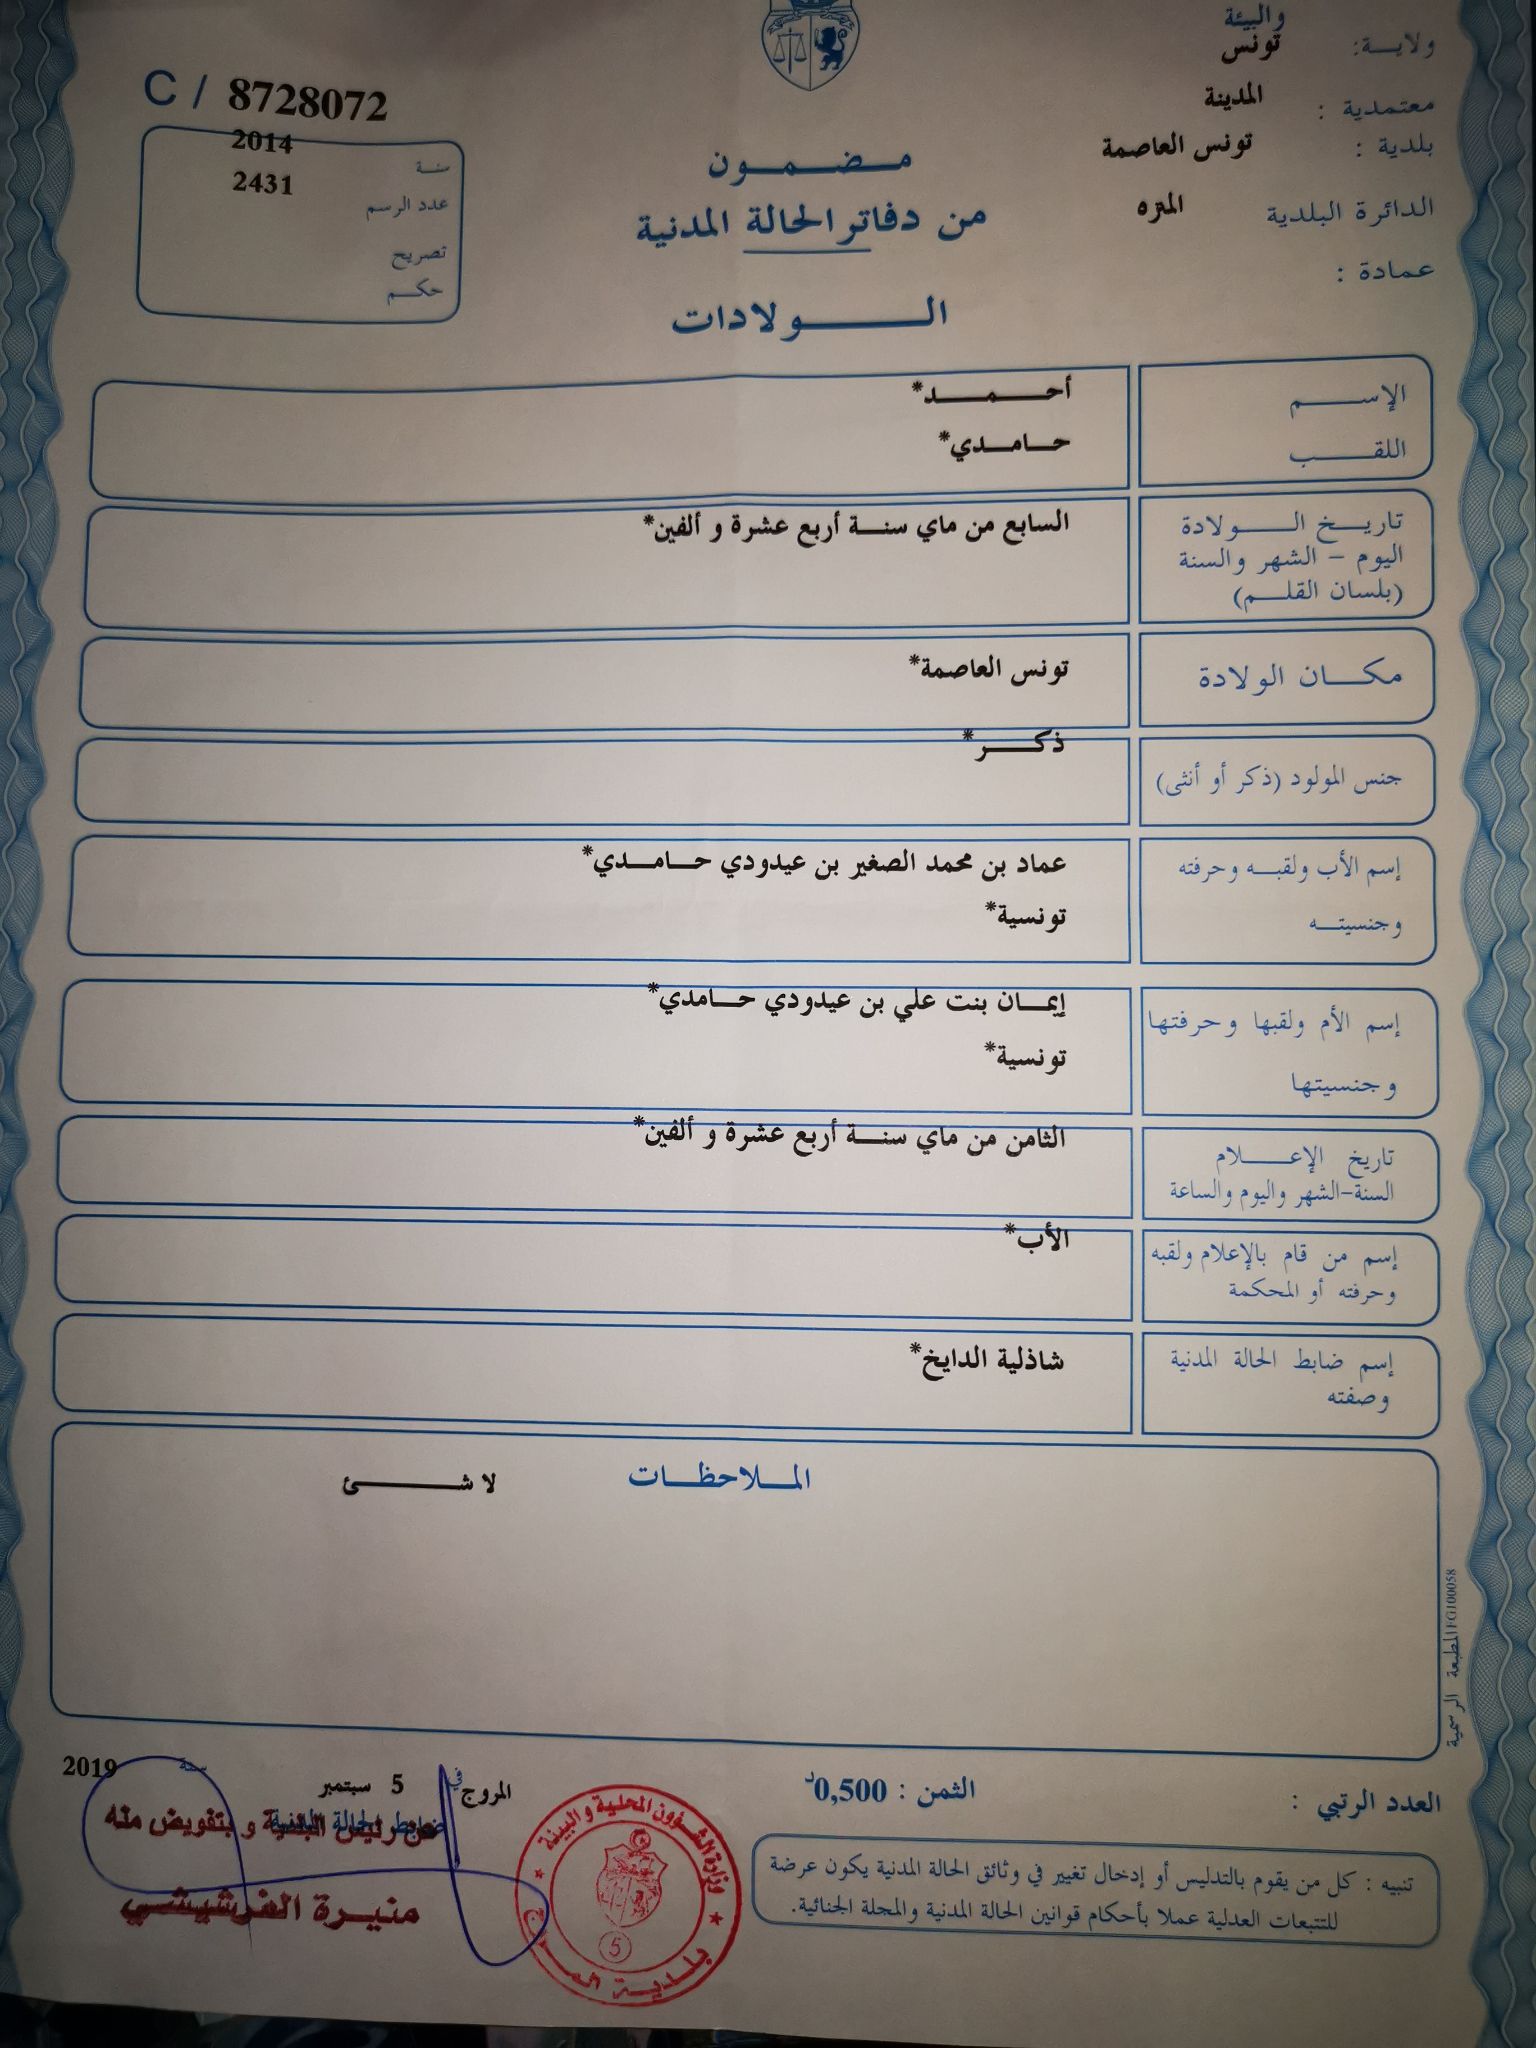 والبيئة
ولايــة: تونس
معتمدية : المدينة
بلدية : تونس العاصمة
الدائرة البلدية المنزه
عمادة :
C / 8728072
سنة 2014
عدد الرسم 2431
تصريح
حكم
مضمون
من دفاتر الحالة المدنية
الولادات
الإسم أحمد*
اللقب حامدي*
تاريخ الولادة السابع من ماي سنة أربع عشرة و ألفين*
اليوم – الشهر والسنة
(بلسان القلم)
مكان الولادة تونس العاصمة*
جنس المولود (ذكر أو أنثى) ذكر*
إسم الأب ولقبه وحرفته عماد بن محمد الصغير بن عيدودي حامدي*
وجنسيته تونسية*
إسم الأم ولقبها وحرفتها إيمان بنت علي بن عيدودي حامدي*
وجنسيتها تونسية*
تاريخ الإعلام الثامن من ماي سنة أربع عشرة و ألفين*
السنة-الشهر واليوم والساعة
إسم من قام بالإعلام ولقبه الأب*
وحرفته أو المحكمة
إسم ضابط الحالة المدنية شاذلية الدايخ*
وصفته
الملاحظات لا شئ
المطبعة الرسمية FG100058
العدد الرتبي :
الثمن : 0,500د
المروج في 5 سبتمبر سنة 2019
ضابط الحالة المدنية
عن رئيس البلدية و بتفويض منه
منيرة الفرشيشي
وزارة الشؤون المحلية والبيئة
بلدية المروج
5
تنبيه : كل من يقوم بالتدليس أو إدخال تغيير في وثائق الحالة المدنية يكون عرضة
للتتبعات العدلية عملا بأحكام قوانين الحالة المدنية والمجلة الجنائية.